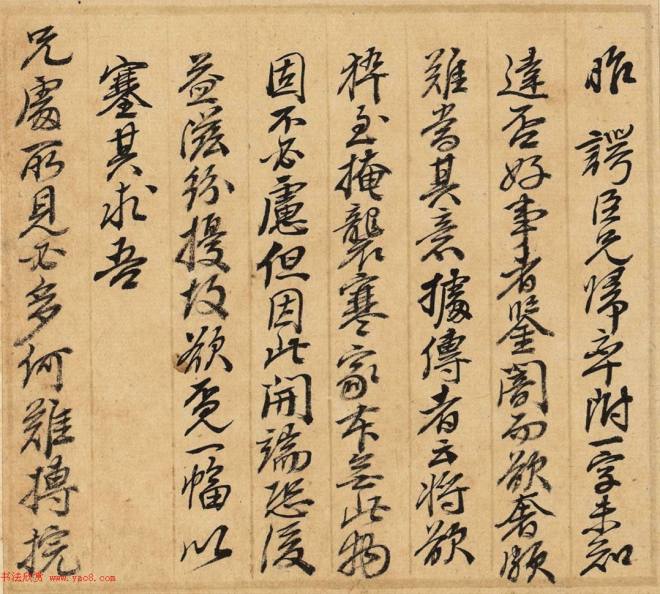 昨 諤臣兄歸卒附一字未知
達否好事者鑒闇而欲奢頗
難當其意據傳者云將欲
猝至掩襲寒家本無此物
固不必慮但因此開端恐後
益滋紛擾故欲覓一幅以
塞其求吾
兄處所見必多何難摶挽
书法欣赏 www.yac8.com